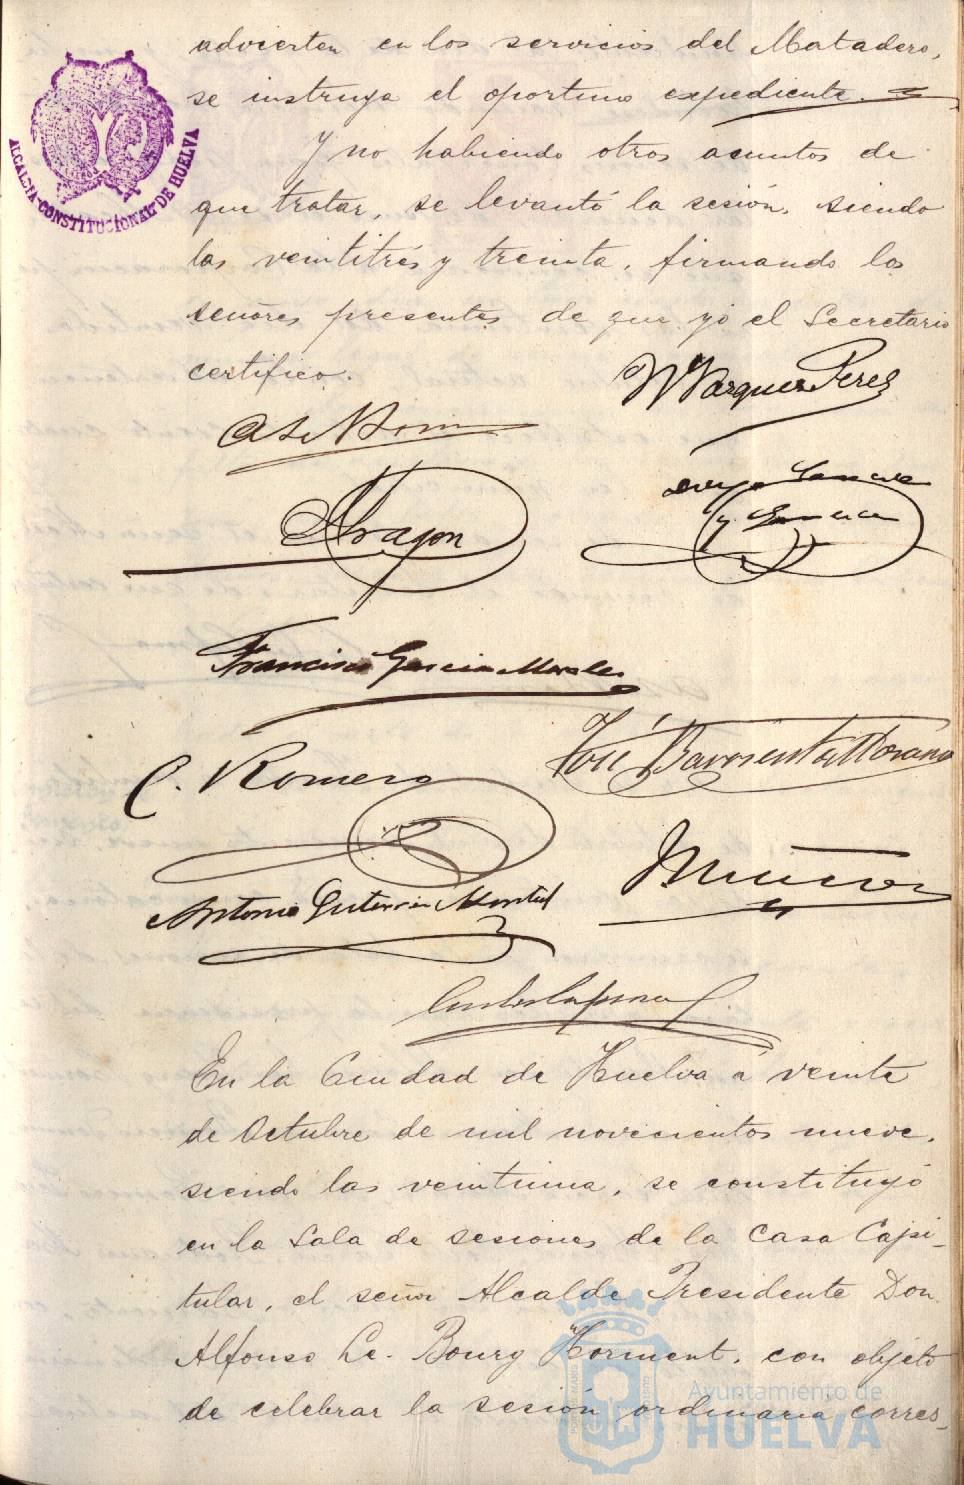 advierten en los servicios del Matadero,
se instruya el oportuno expediente.
Y no habiendo otros asuntos de
que tratar, se levantó la sesión, siendo
las veintitrés y treinta, firmando los
señores presentes de que yo el Secretario
certifico.
ALCALDIA CONSTITUCIONAL DE HUELVA
M Vazquez Perez
Aragon
Francisco Garcia Morales
C. Romero
José
Muñoz
Antonio Gutierrez
En la Ciudad de Huelva a veinte
de Octubre de mil novecientos nueve,
siendo las veintiuna, se constituyó
en la Sala de sesiones de la Casa Capi-
tular, el señor Alcalde Presidente Don
Alfonso Le-Bourg Horment, con objeto
de celebrar la sesión ordinaria corres-
Ayuntamiento de
HUELVA